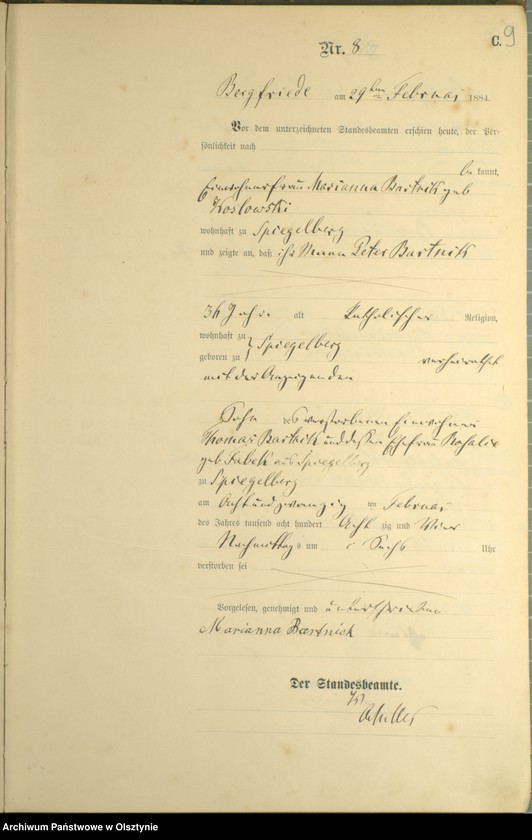 9
C.
Nr. 8
Bergfriede am 29ten Februar 1884.
Vor dem unterzeichneten Standesbeamten erschien heute, der Per-
sönlichkeit nach
be kannt,
Einwohnerfrau Marianna Bartnik geb
Koslowski
wohnhaft zu Spiegelberg
und zeigte an, daß ihr Mann Peter Bartnik
36 Jahre alt katholischer Religion,
wohnhaft zu
geboren zu } Spiegelberg verheirathet
mit der Anzeigenden
Sohn des verstorbenen Einwohner
Thomas Bartnik und dessen Ehefrau Rosalie
geb. aus Spiegelberg
zu Spiegelberg
am Acht und zwanzig ten Februar
des Jahres tausend acht hundert Acht zig und Vier
Nachmittags um Sechs Uhr
verstorben sei
Vorgelesen, genehmigt und unterschrieben
Marianna Bartnick
Der Standesbeamte.
Archiwum Państwowe w Olsztynie